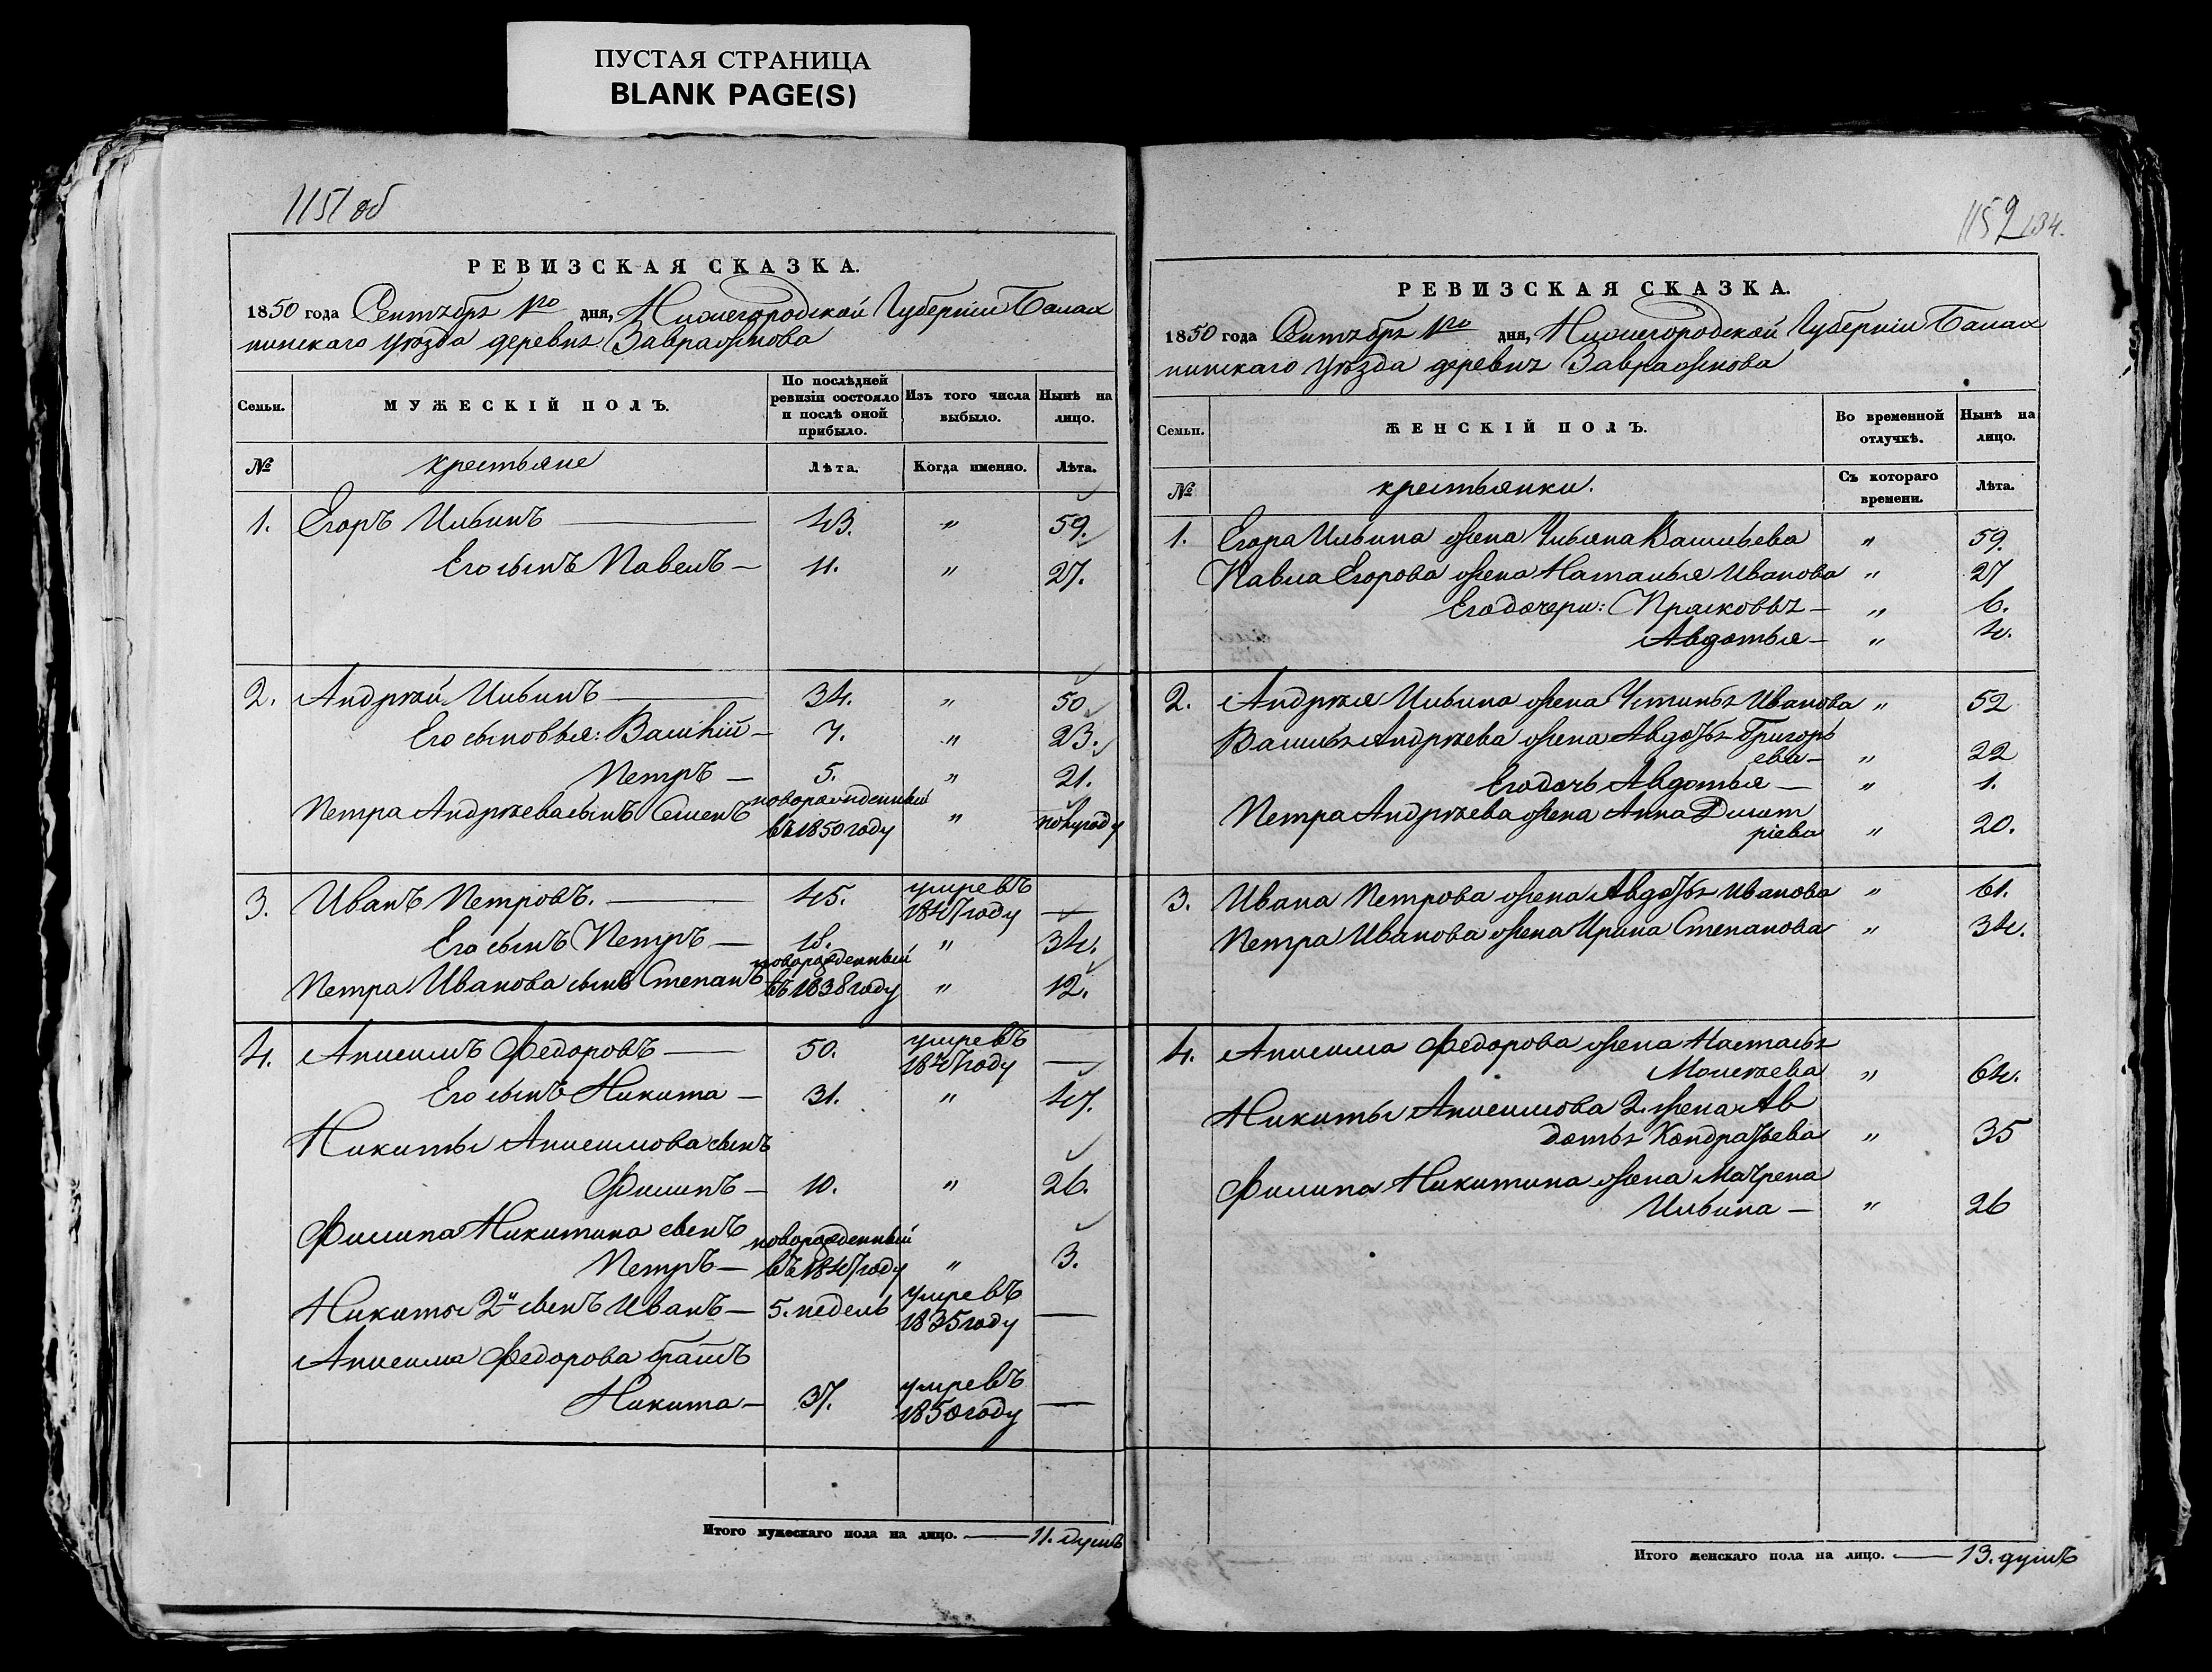 ПУСТАЯ СТРАНИЦА
BLANK PAGE(S)
1151 об
РЕВИЗСКАЯ СКАЗКА.
1850 года Сентября 1го дня, Нижегородской Губерніи Балах
нинскаго уѣзда деревни Завражнова
Семьи. МУЖЕСКІЙ ПОЛЪ. По послѣдней ревизіи состояло и послѣ оной прибыло. Изъ того числа выбыло. Нынѣ на лицо.
№ крестьяне Лѣта. Когда именно. Лѣта.
1. Егоръ Ильинъ — 43. " 59.
Его сынъ Павелъ — 11. " 27.
2. Андрѣй Ильинъ — 34. " 50
Его сыновья: Василій — 7. " 23.
Петръ — 5. " 21.
Петра Андрѣева сынъ Семенъ новорожденный въ 1850 году " полугоду
3. Иванъ Петровъ. — 45. умревъ 1847 году —
Его сынъ Петръ — 18. " 34.
Петра Иванова сынъ Степанъ новорожденный въ 1838 году " 12.
4. Анисимъ Федоровъ — 50. умревъ 1847 году —
Его сынъ Никита — 31. " 47.
Никиты Анисимова сынъ
Филипъ — 10. " 26.
Филипа Никитина сынъ
Петръ — новорожденный въ 1847 году " 3.
Никиты 2й сынъ Иванъ — 5. недель умревъ 1835 году —
Анисима Федорова братъ
Никита — 37. умревъ 1850 году —
Итого мужескаго пола на лицо. — 11. душъ
1152 134.
РЕВИЗСКАЯ СКАЗКА.
1850 года Сентября 1го дня, Нижегородской Губерніи Балах
нинскаго уѣзда деревни Завражнова
Семьи. ЖЕНСКІЙ ПОЛЪ. Во временной отлучкѣ. Нынѣ на лицо.
№ крестьянки. Съ котораго времени. Лѣта.
1. Егора Ильина жена Ульяна Васильева " 59.
Павла Егорова жена Наталья Иванова " 27
Его дочери: Прасковья — " 6.
Авдотья — " 4.
2. Андрѣя Ильина жена Устинья Иванова " 52
Василья Андрѣева жена Авдотья Григорь
ева — " 22
Его дочь Авдотья — " 1.
Петра Андрѣева жена Анна Дмит
ріева " 20.
3. Ивана Петрова жена Авдотья Иванова " 61.
Петра Иванова жена Ирина Степанова " 34.
4. Анисима Федорова жена Настасья
Моисѣева " 64.
Никиты Анисимова 2. жена Ав
дотья Кондратьева " 35
Филипа Никитина жена Матрена
Ильина — " 26
Итого женскаго пола на лицо. — 13. душъ